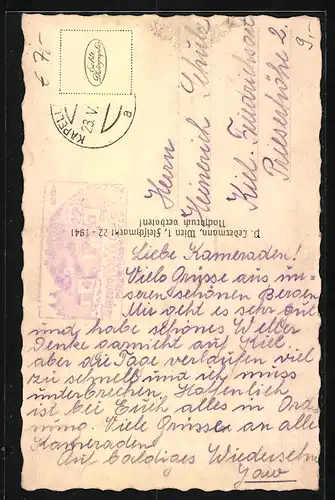 € 7,-
9,-
Echte Photographie
KAPELL
23.V.
a
Herrn
Heinrich Schulz
Kiel-Friedrichsort
Prieserhöhe 2.
P. Ledermann, Wien 1, Fleischmarkt 22 - 1941
Nachdruck verboten!
Liebe Kameraden!
Viele Grüsse aus un-
seren schönen Bergen
Mir geht es sehr gut
und habe schönes Wetter
Denke garnicht auf Kiel.
aber die Tage verlaufen viel
zu schnell und ich muss
unterbrechen. Hoffentlich
ist bei Euch alles in Ord
nung. Viele Grüsse an alle
Kameraden
Auf baldiges Wiedersehn